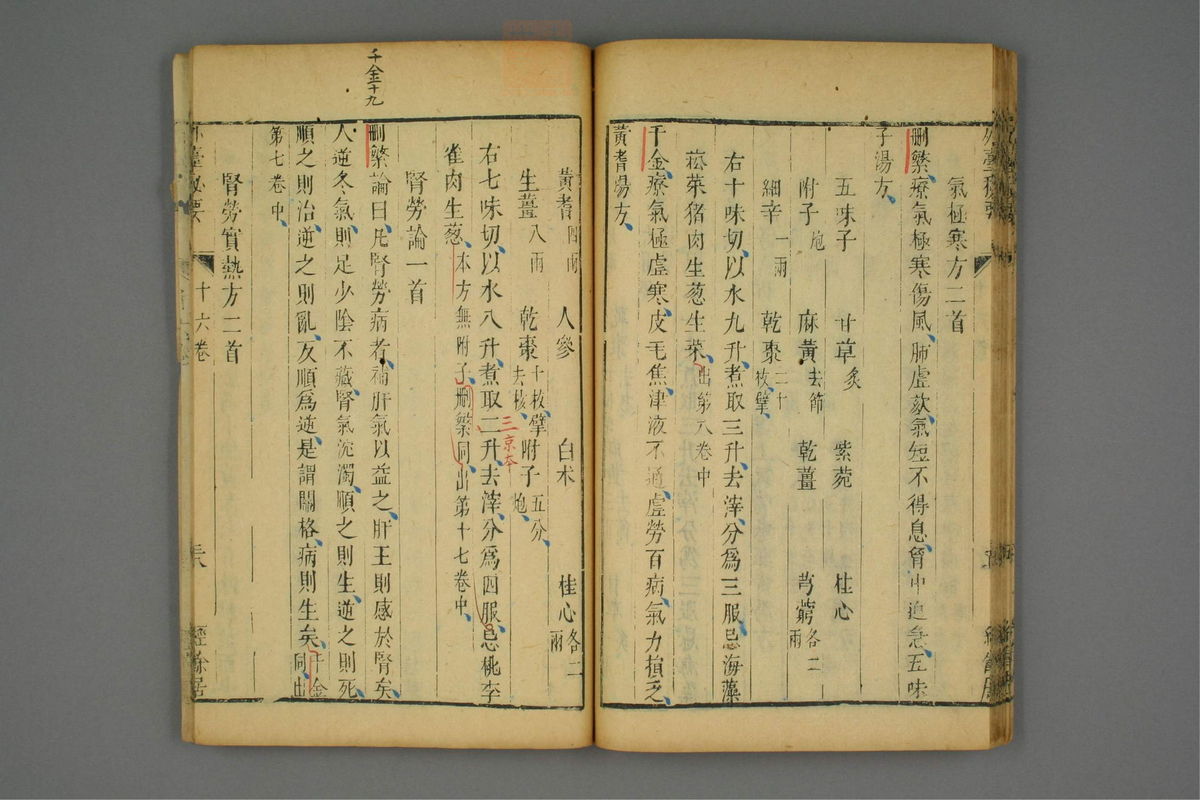 氣極寒方二首
刪繁療氣極寒傷風肺虛欬氣短不得息胷中迫急五味
子湯方
五味子 甘草炙 紫菀 桂心
附子炮 麻黃去節 乾薑 芎藭各二兩
細辛一兩 乾棗二十枚擘
右十味切以水九升煮取三升去滓分爲三服忌海藻
菘菜猪肉生葱生菜出第八卷中
千金療氣極虛寒皮毛焦津液不通虛勞百病氣力損乏
黃耆湯方
黃耆四兩 人參 白术 桂心各二兩
生薑八兩 乾棗十枚擘去核 附子五分炮
右七味切以水八升煮取二升去滓分爲四服忌桃李
三京本
雀肉生葱本方無附子刪繁同出第十七卷中
腎勞論一首
千金十九
刪繁論曰凡腎勞病者補肝氣以益之肝王則感於腎矣
人逆冬氣則足少陰不藏腎氣沉濁順之則生逆之則死
順之則治逆之則亂反順爲逆是謂關格病則生矣千金同出
第七卷中
腎勞實熱方二首
外臺秘要 十六卷 三八 經餘居